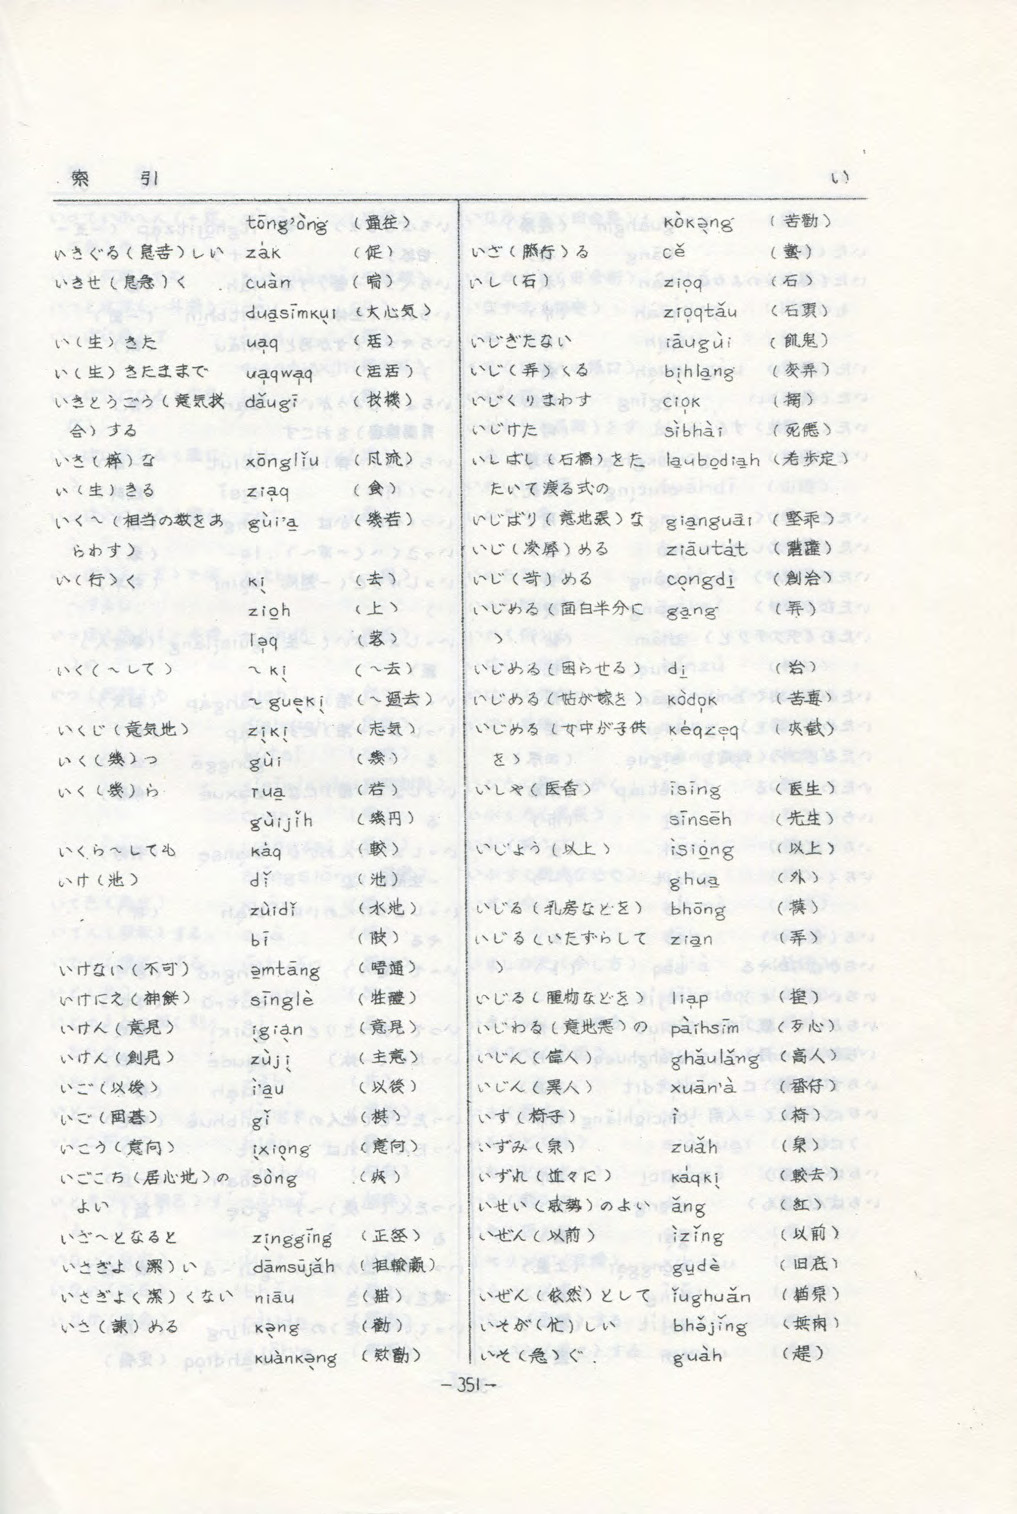 索引 い
tōng'òng (通往)
いきぐる(息苦)しい zák (促)
いきせ(息急)く cuàn (喘)
dua̱sīmkụi (大心気)
い(生)きた uạq (活)
い(生)きたままで uạqwạq (活活)
いきとうごう(意気投 dǎugī (投機)
合)する
いき(粋)な xōngliǔ (風流)
い(生)きる ziạq (食)
いく〜(相当の数をあ gùi'a̱ (幾若)
らわす)
い(行)く kị (去)
zio̱h (上)
lạq (落)
いく(〜して) 〜kị (〜去)
〜guẹkị (〜過去)
いくじ(意気地) zịkị (志気)
いく(幾)つ gùi (幾)
いく(幾)ら rua̱ (若)
gùijǐh (幾円)
いくら〜しても kàq (較)
いけ(池) dǐ (池)
zùidǐ (水池)
bī (陂)
いけない(不可) a̱mtāng (唔通)
いけにえ(神餅) sīnglè (牲醴)
いけん(意見) ịgiạn (意見)
いけん(創見) zùjị (主意)
いご(以後) ì'a̱u (以後)
いご(囲碁) gǐ (棋)
いこう(意向) ịxiọng (意向)
いごこち(居心地)の sòng (爽)
よい
いざ〜となると zịnggīng (正経)
いさぎよ(潔)い dāmsūjǎh (担輸贏)
いさぎよく(潔)くない niāu (猫)
いさ(諫)める kạng (勸)
kuànkạng (勸)
kòkạng (苦勸)
いざ(膝行)る cě
いし(石) zioq (石)
zioqtǎu (石頭)
いじぎたない iāugùi (飢鬼)
いじ(弄)くる bịhla̱ng
いじくりまわす ciok
いじけた sìbhài (死)
いしばし(石橋)をた la̱ubo̱dia̱h (老歩定)
たいて渡る式の
いじばり(意地張)な giạnguāi (堅乖)
いじ(凌辱)める ziāutát
いじ(苛)める cọngdi̱ (創治)
いじめる(面白半分に ga̱ng (弄)
)
いじめる(困らせる) di̱ (治)
いじめる(姑が嫁を) kòdọk (苦毒)
いじめる(女中が子供 kéqzẹq
を)
いしゃ(医者) īsīng (医生)
sīnsēh (先生)
いじょう(以上) ìsio̱ng (以上)
ghua̱ (外)
いじる(乳房などを) bhōng (摸)
いじる(いたずらして zia̱n (弄)
)
いじる(腫物などを) liap (捏)
いじわる(意地悪)の pàihsīm (歹心)
いじん(偉人) ghǎulǎng (高人)
いじん(異人) xuān'à (番仔)
いす(椅子) ì (椅)
いずみ(泉) zuǎh (泉)
いずれ(近々に) káqkị (較去)
いせい(威勢)のよい ǎng (紅)
いぜん(以前) ìzǐng (以前)
gu̱dè (旧底)
いぜん(依然)として ǐughuǎn (猶原)
いそが(忙)しい bhějǐng
いそ(急)ぐ guàh (趕)
-351-